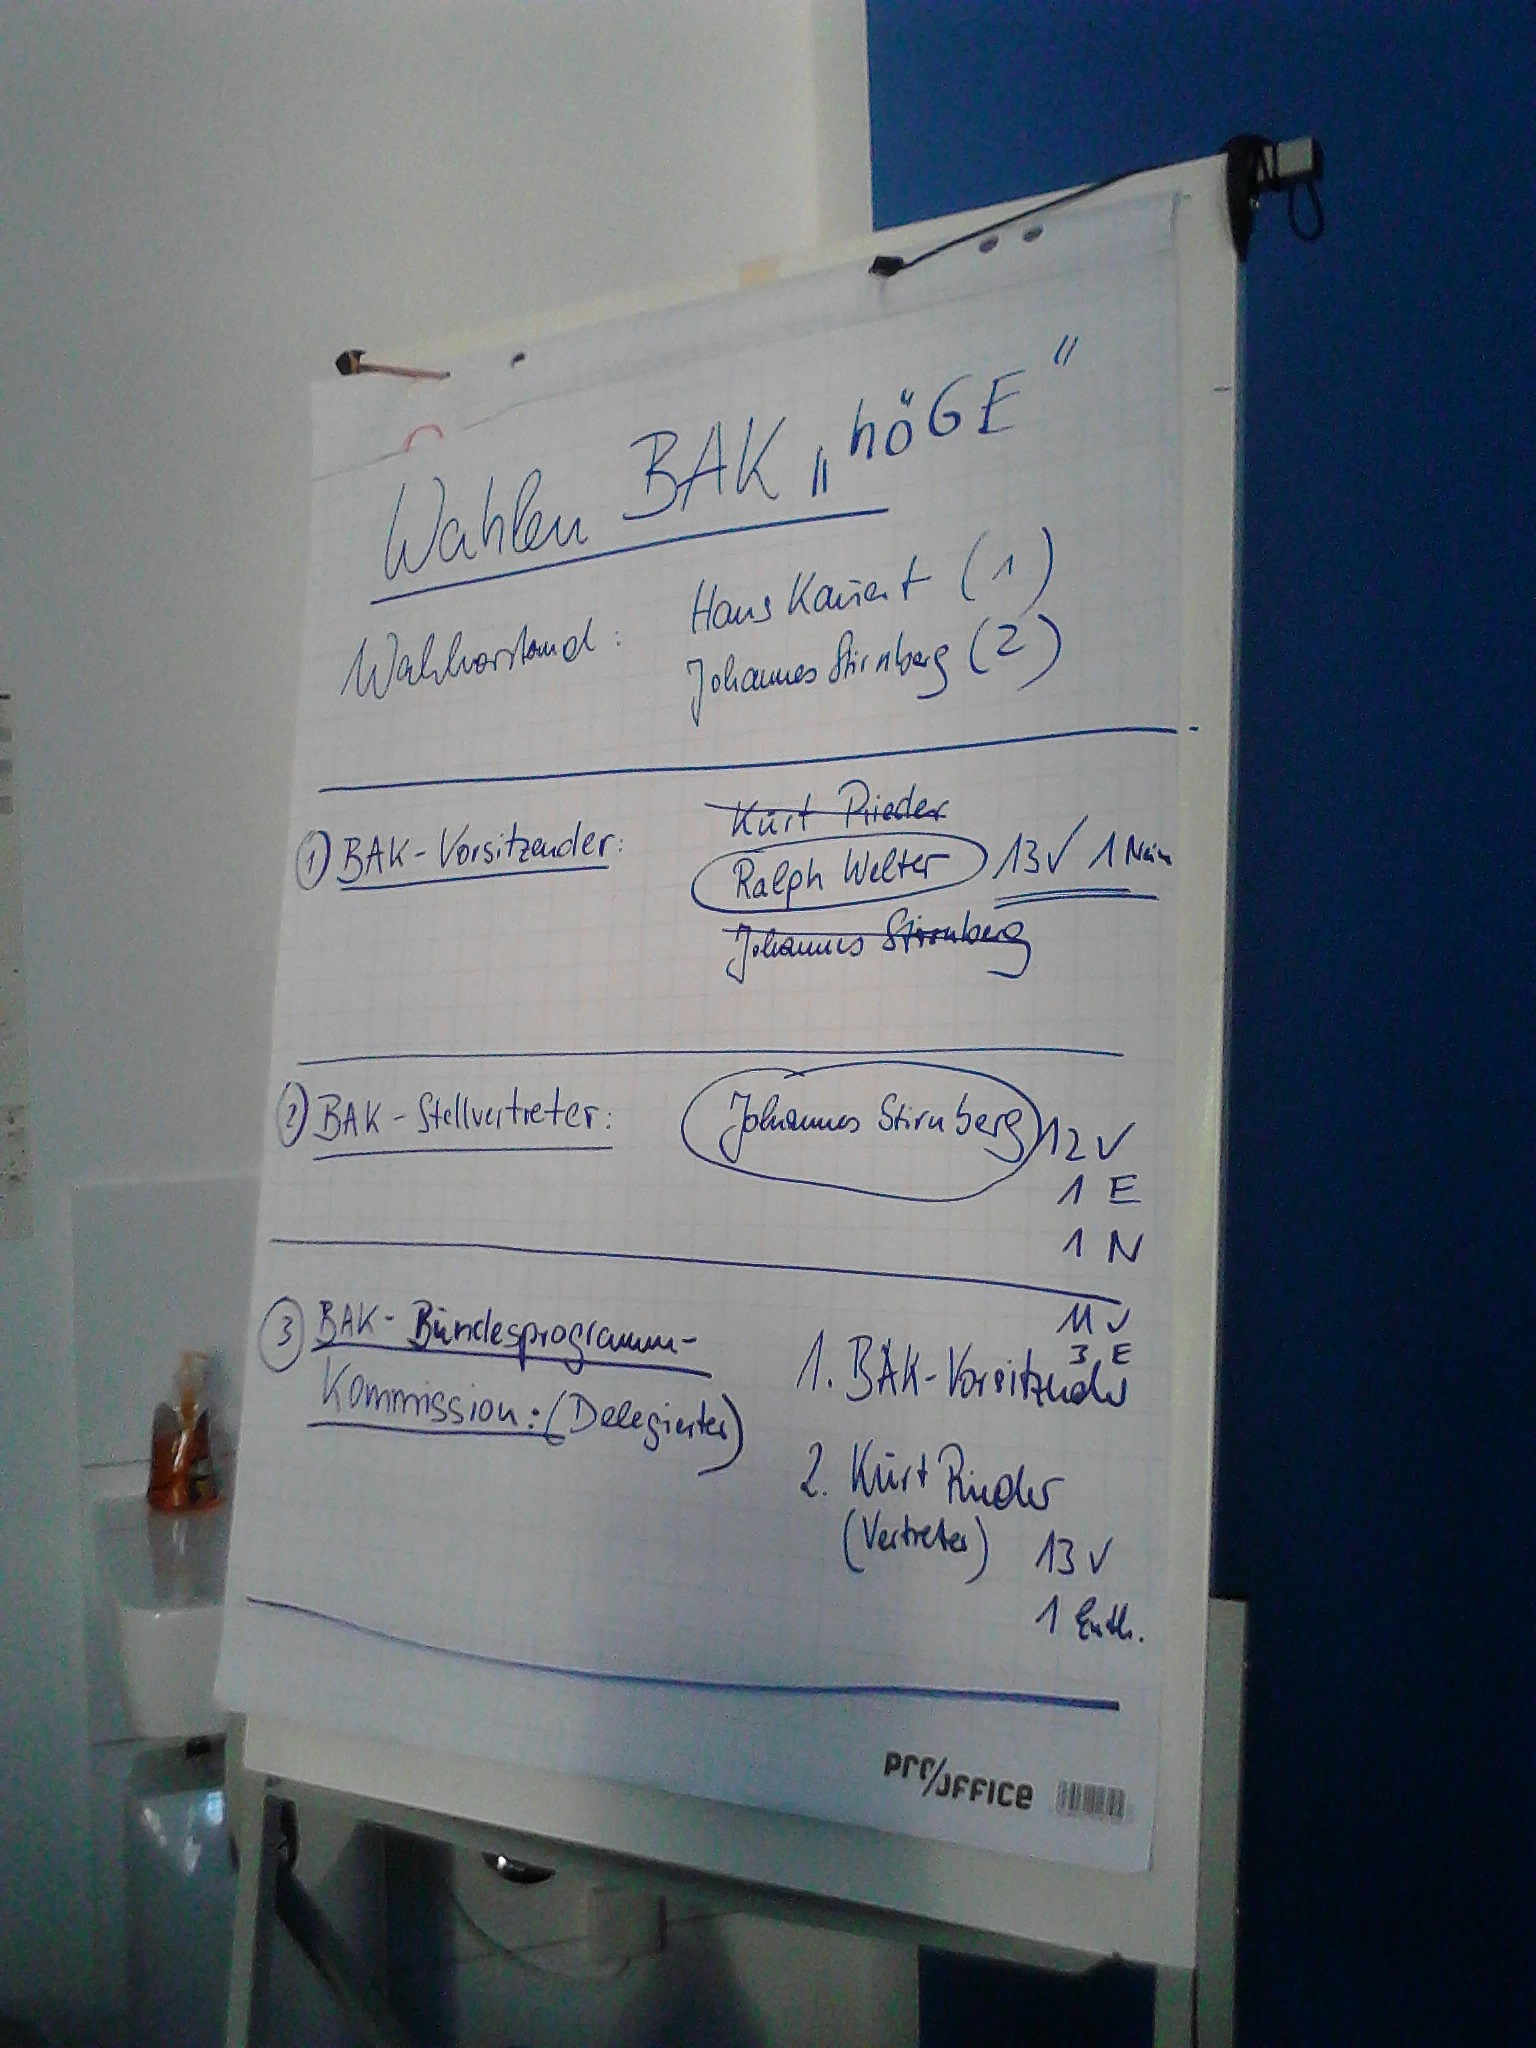 Wahlen BAK „höGE“
Wahlvorstand: Hans Kauert (1)
Johannes Stirnberg (2)
① BAK-Vorsitzender: Kurt Rieder
Ralph Welter 13✓ 1 Nein
Johannes Stirnberg
② BAK-Stellvertreter: Johannes Stirnberg 12 ✓
1 E
1 N
11 ✓
3 E
③ BAK-Bundesprogramm-
Kommission: (Delegierter)
1. BAK-Vorsitzender
2. Kurt Rieder
(Vertreter) 13 ✓
1 Enth.
PRO/OFFICE